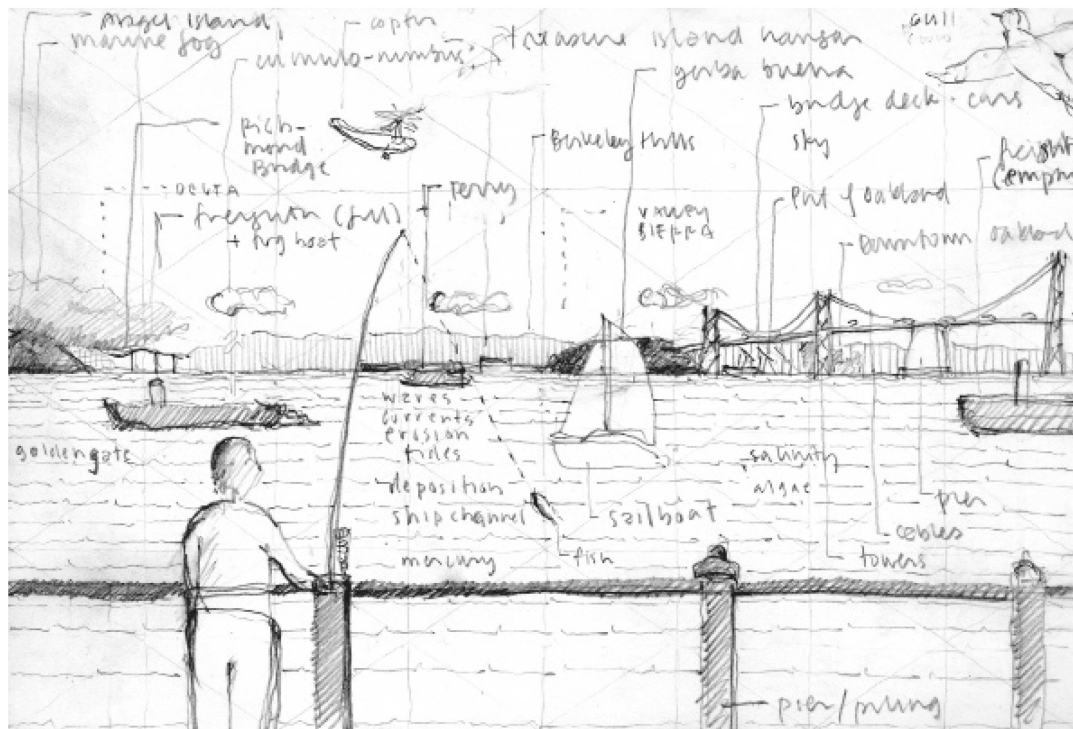 Angel Island
marine fog
copter
cumulo-nimbus
treasure island hangar
yerba buena
gull
bridge deck - cars
sky
Rich-
mond
Bridge
Berkeley Hills
DELTA
freighter (full)
+ tug boat
ferry
VALLEY
SIERRA
Port of Oakland
Downtown Oakland
waves
currents
erosion
tides
goldengate
deposition
ship channel
mercury
salinity
algae
sailboat
fish
pier
cables
towers
pier/piling